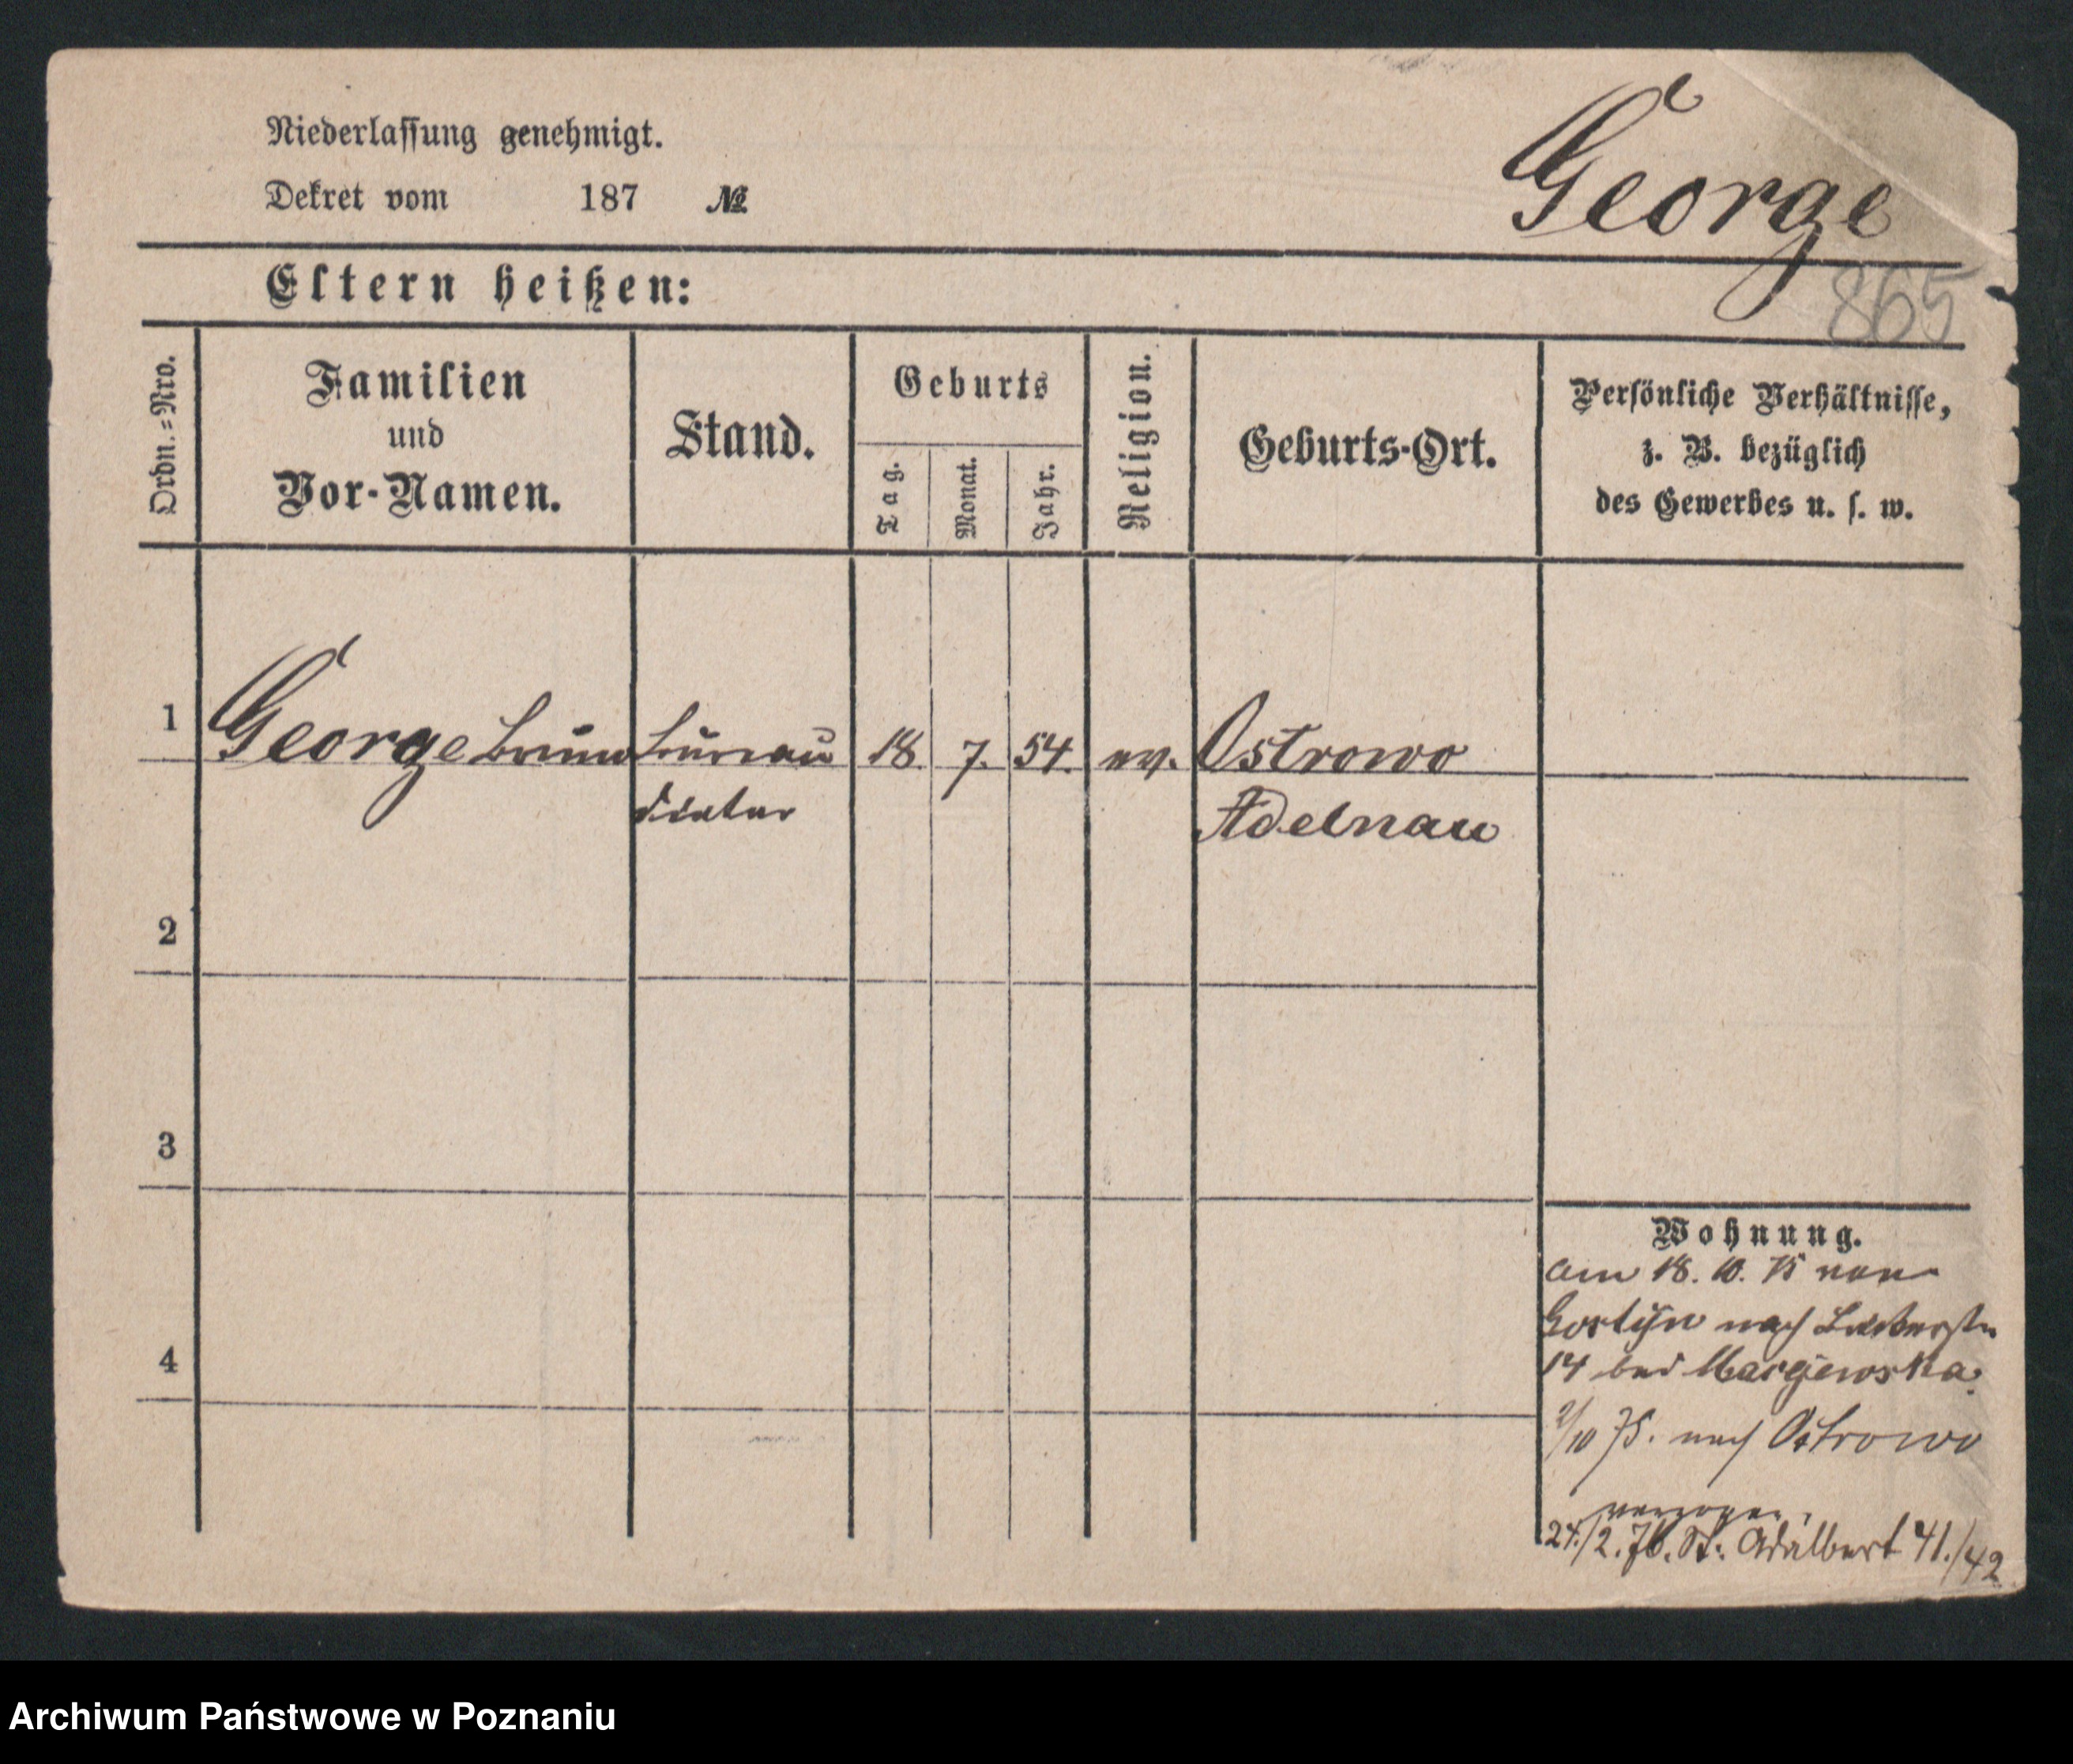 Niederlassung genehmigt.
Dekret vom 187 №
George
865
Eltern heißen:
Ordn.=Nro.
Familien
und
Vor-Namen.
Stand.
Geburts
Tag.
Monat.
Jahr.
Religion.
Geburts-Ort.
Persönliche Verhältnisse,
z. B. bezüglich
des Gewerbes u. s. w.
1 George Bruno Bureau 18. 7. 54. ev. Ostrowo
diätar Adelnau
2
3
4
Wohnung.
am 18. 10. 75 von
nach
14 bei
/10 75. nach Ostrowo
verzogen.
24./2. 76. St. Adalbert 41./42
Archiwum Państwowe w Poznaniu